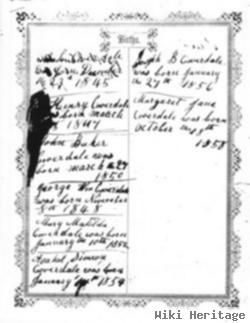 Births.
was born
1845
Henry Coverdale
was born march
1847
John Baker
coverdale was
born march the 27
1850
George Wm Coverdale
was born November
8th 1848
Mary Matilda
Coverdale was born
January the 10th 1852
Simeon
Coverdale was born
January 1854
Joseph B Coverdale
was born January
the 27th 1856
Margaret Jane
Coverdale was born
October the
1858
Wiki Heritage